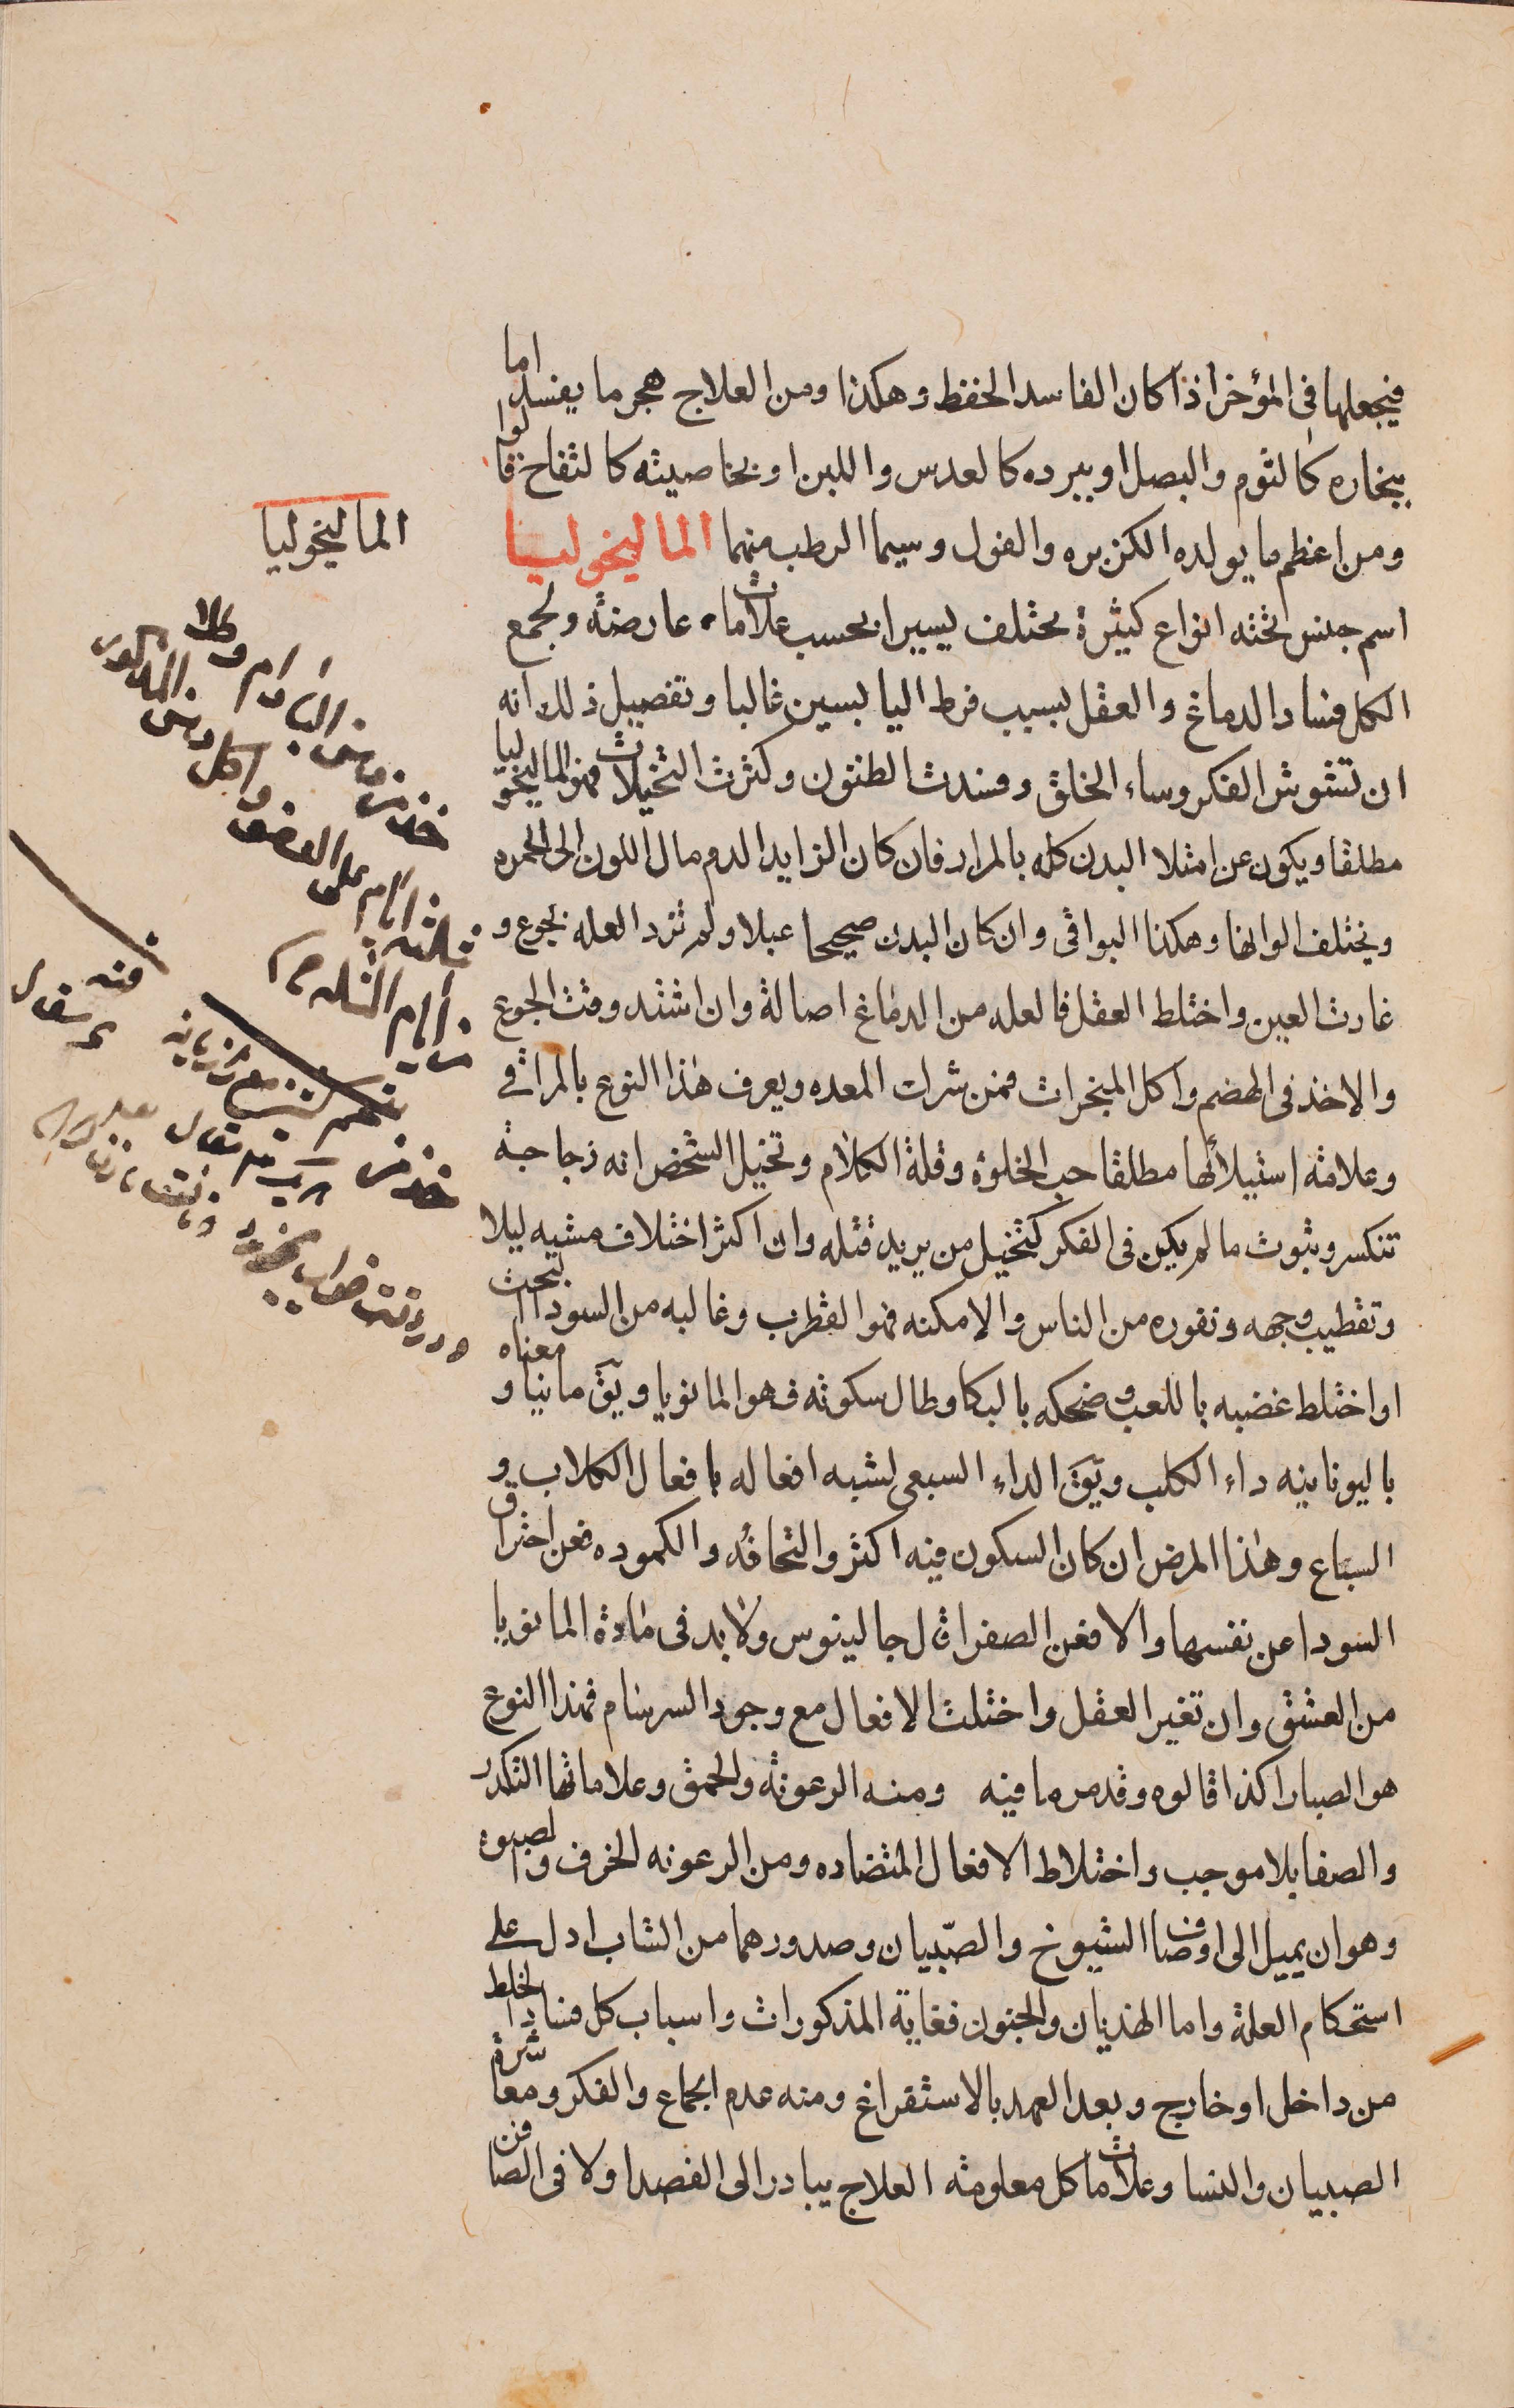 فيجعلها في المؤخر اذا كان الفاسد الحفظ وهكذا ومن العلاج هجر ما يفسد اما
ببخاره كالثوم والبصل او ببرده كالعدس واللبن او بخاصيته كالتفاح قالوا
ومن اعظم ما يولده الكزبره والفول وسيما الرطب منهما الماليخوليا
اسم جنس تحته انواع كثيرة تختلف يسيرا بحسب علامات عارضة وتجمع
الكل فساد الدماغ والعقل بسبب فرط اليابسين غالبا وتفصيل ذلك انه
ان تشوش الفكر وساء الخلق وفسدت الظنون وكثرت التخيلات فهو الماليخوليا
مطلقا ويكون عن امتلا البدن كله بالمرار فان كان الزايد الدم مال اللون الى الحمره
وتختلف الوانها وهكذا البواقي وان كان البدن صحيحا عبلا ولم تزد العله بجوع و
غارت العين واختلط العقل فالعله من الدماغ اصالة وان اشتد وقت الجوع
والاخذ في الهضم واكل المبخرات فمن شرات المعده ويعرف هذا النوع بالمراقي
وعلامته استيلائها مطلقا حب الخلوة وقلة الكلام وتخيل الشخص انه زجاجة
تنكسر وثبوت ما لم يكن في الفكر كتخيل من يريد قتله وان اكثر اختلاف مشيه ليلا
وتقطيب وجهه ونفوره من الناس والامكنه فهو القطرب وغالبه من السودا البحت
او اختلط غضبه باللعب وضحكه بالبكا وطال سكوته فهو المانويا ويقَ مانيا ومعناه
باليونانيه داء الكلب ويقَ الداء السبعي لشبه افعاله بافعال الكلاب و
السباع وهذا المرض ان كان السكون فيه اكثر والنحافه والكموده فعن احتراق
السودا عن نفسها والا فعن الصفرا قال جالينوس ولا بد في مادة المانويا
من العشق وان تغير العقل واختلت الافعال مع وجود السرسام فهذا النوع
هو الصبارا كذا قالوه وقد مر ما فيه ومنه الرعونة والحمق وعلاماتها التكدر
والصفا بلا موجب واختلاط الافعال المتضاده ومن الرعونه الخرف والصبوة
وهو ان يميل الى اوصاف الشيوخ والصبيان وصدورهما من الشاب ادل على
استحكام العلة واما الهذيان والجنون فغاية المذكورات واسباب كل فساد الخلط
من داخل او خارج وبعد العهد بالاستفراغ ومنه عدم الجماع والفكر ومعاشرة
الصبيان والنسا وعلامات كل معلومة العلاج يبادر الى الفصد اولا في الصافن
الماليخوليا
خذ من
ثلاثه ايام على
خذ من